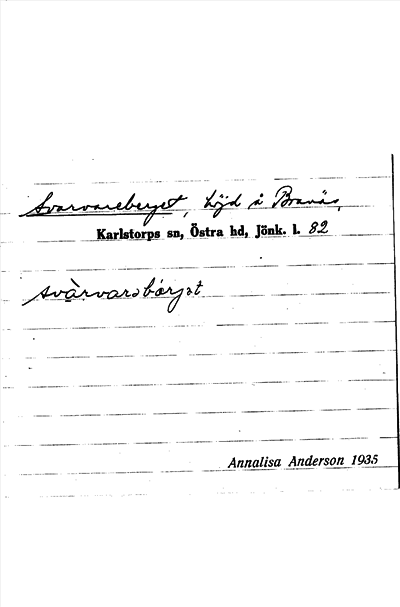 Svarvareberget, höjd å Bravås,
Karlstorps sn, Östra hd, Jönk. l. 82
svàrvarəbærjət
Annalisa Anderson 1935